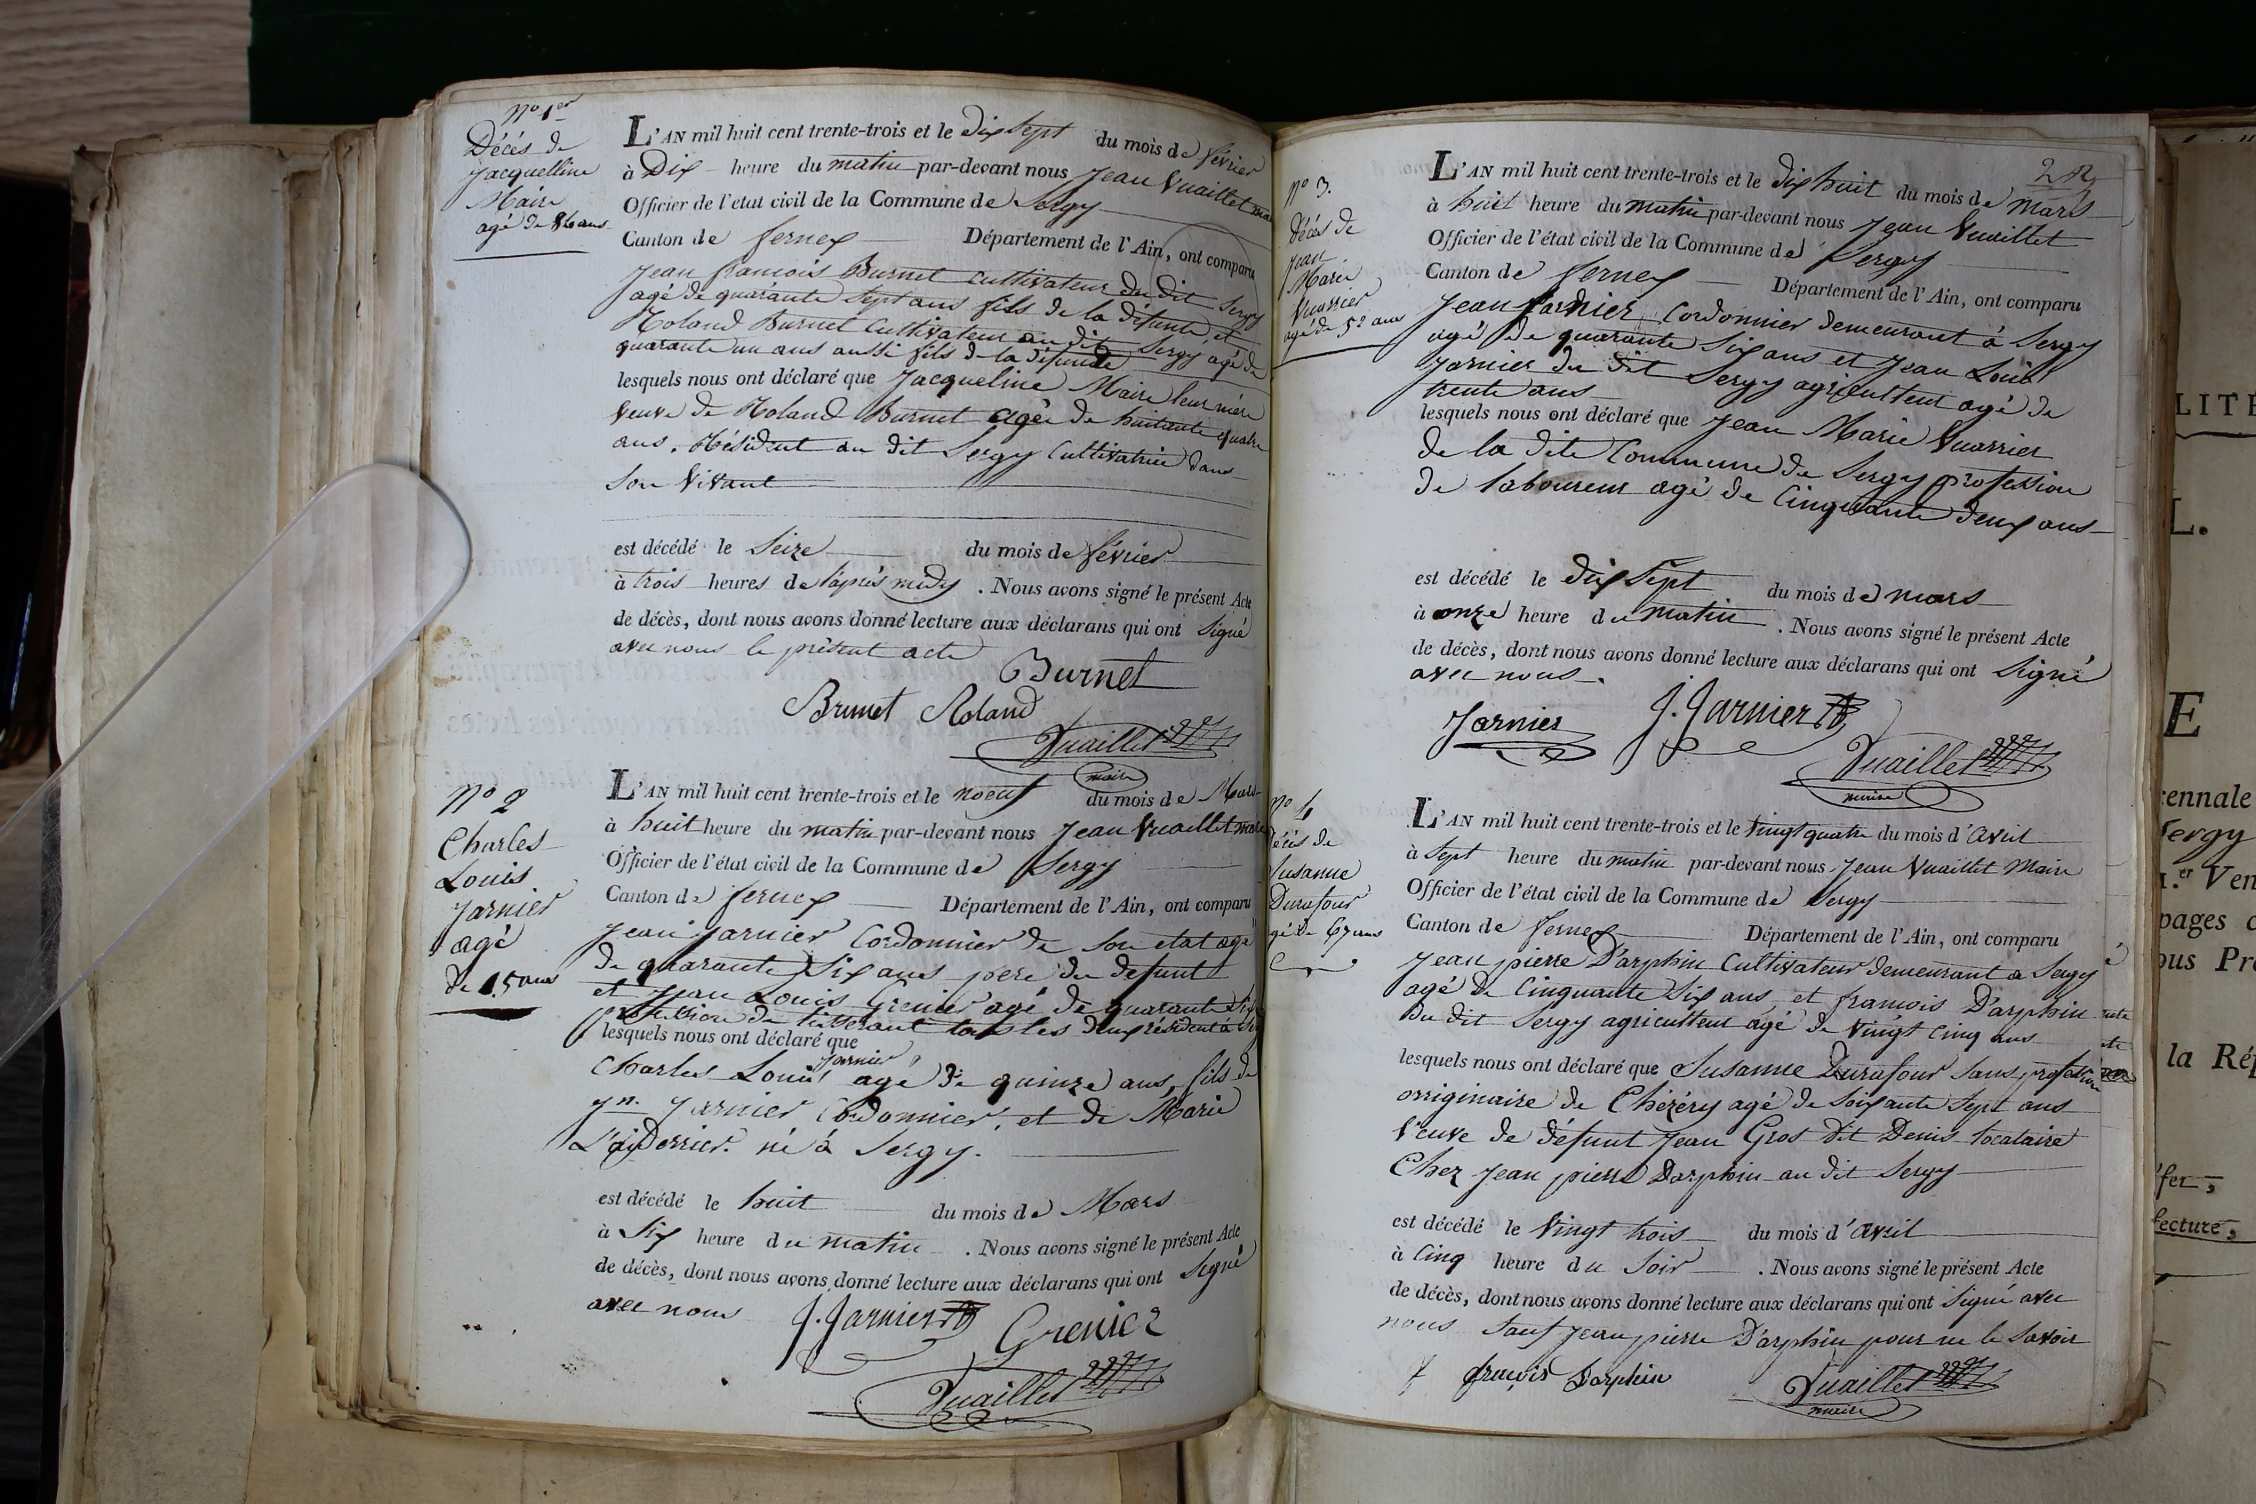 No 1er
Décés de
Jacquelline
Maire
agé de 86 ans
L'AN mil huit cent trente-trois et le Dix Sept du mois de février
à Dix heure du matin par-devant nous Jean Vuaillet
Officier de l'etat civil de la Commune de Sergy
Canton de fernex Département de l'Ain, ont comparu
Jean francois Burnet Cultivateur du dit Sergy
agé de quarante Sept ans fils de la défunte, et
Roland Burnet Cultivateur au dit Sergy agé de
quarante un ans aussi fils de la défunte
lesquels nous ont déclaré que Jacqueline Maire leur mère
Veuve de Roland Burnet agée de huitante quatre
ans. Résident au dit Sergy Cultivatrice dans
Son Vivant
est décédé le Seize du mois de février
à trois heures de l'après midy . Nous avons signé le présent Acte
de décès, dont nous avons donné lecture aux déclarans qui ont Signé
avec nous le présent acte
Burnet
Brunet Roland
Vuaillet
maire
No 2
Charles
Louis
Jarnier
agé
de 15 ans
L'AN mil huit cent trente-trois et le noeuf du mois de Mars
à huit heure du matin par-devant nous Jean Vuaillet maire
Officier de l'état civil de la Commune de Sergy
Canton de fernex Département de l'Ain, ont comparu
Jean Jarnier Cordonnier de Son etat agé
de quarante Six ans père du defunt
et Jean Louis Grenier agé de quarante Six
profession de tisserant tous les deux résident à
lesquels nous ont déclaré que
Jarnier
Charles Louis agé de quinze ans, fils de
Jn. Jarnier Cordonnier, et de Marie
né à Sergy.
est décédé le huit du mois de Mars
à Six heure du matin . Nous avons signé le présent Acte
de décès, dont nous avons donné lecture aux déclarans qui ont Signé
avec nous
J. Jarnier
Grenier
Vuaillet
28
No 3.
Décés de
Jean
Marie
Vuarrier
agé de 52 ans
L'AN mil huit cent trente-trois et le dix huit du mois de Mars
à huit heure du matin par-devant nous Jean Vuaillet
Officier de l'état civil de la Commune de Sergy
Canton de fernex Département de l'Ain, ont comparu
Jean Jarnier, Cordonnier demeurant à Sergy
agé de quarante Six ans et Jean Louis
Jarnier du dit Sergy agriculteur agé de
trente ans
lesquels nous ont déclaré que Jean Marie Vuarrier
de la dite Commune de Sergy profession
de laboureur agé de Cinquante deux ans
est décédé le dix Sept du mois de mars
à onze heure du matin . Nous avons signé le présent Acte
de décès, dont nous avons donné lecture aux déclarans qui ont Signé
avec nous.
Jarnier
J. Jarnier
Vuaillet
maire
No 4
Décés de
Susanne
Durafour
agé de 67 ans
L'AN mil huit cent trente-trois et le Vingt quatre du mois d'avril
à Sept heure du matin par-devant nous Jean Vuaillet Maire
Officier de l'état civil de la Commune de Sergy
Canton de fernex Département de l'Ain, ont comparu
Jean pierre D'arphin Cultivateur demeurant à Sergy
agé de Cinquante Six ans, et francois D'arphin
du dit Sergy agriculteur agé de Vingt Cinq ans
lesquels nous ont déclaré que Susanne Durafour Sans profession
originaire de Chézéry agé de Soixante Sept ans
Veuve de défunt Jean Gros dit Denis locataire
Chez Jean pierre Darphin au dit Sergy
est décédé le Vingt trois du mois d'avril
à Cinq heure du Soir . Nous avons signé le présent Acte
de décès, dont nous avons donné lecture aux déclarans qui ont Signé avec
nous Sauf Jean pierre D'arphin pour ne le Savoir
françois Darphin
Vuaillet
maire
LITÉ
L.
E
cennale
Sergy
1.er Ven
pages c
ous Pré
la Rép
fer,
fecture,